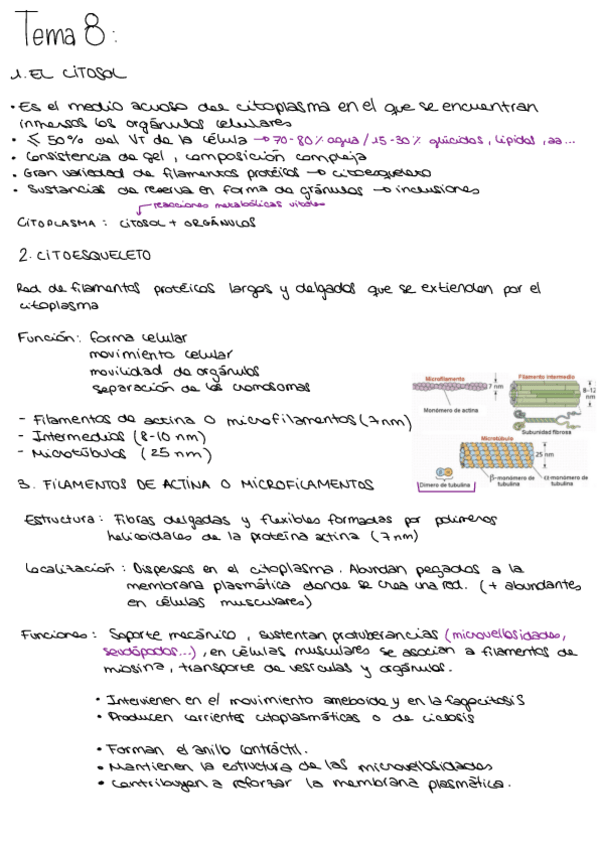 Tema 8:
1. EL CITOSOL
• Es el medio acuoso del citoplasma en el que se encuentran
inmersos los orgánulos celulares
• ≤ 50% del VT de la célula → 70-80% agua / 15-30% glúcidos, lípidos, aa...
• Consistencia de gel, composición compleja
• Gran variedad de filamentos protéicos → citoesqueleto
• Sustancias de reserva en forma de gránulos → inclusiones
reacciones metabólicas vitales
CITOPLASMA: CITOSOL + ORGÁNULOS
2. CITOESQUELETO
Red de filamentos protéicos largos y delgados que se extienden por el
citoplasma
Función: forma celular
movimiento celular
movilidad de orgánulos
separación de los cromosomas
Microfilamento
7 nm
Monómero de actina
Filamento intermedio
8-12
nm
Subunidad fibrosa
- Filamentos de actina o microfilamentos (7nm)
- Intermedios (8-10 nm)
- Microtúbulos (25 nm)
Microtúbulo
25 nm
Dímero de tubulina
β-monómero de
tubulina
α-monómero de
tubulina
3. FILAMENTOS DE ACTINA O MICROFILAMENTOS
Estructura: Fibras delgadas y flexibles formadas por polímeros
helicoidales de la proteína actina (7nm)
Localización: Dispersos en el citoplasma. Abundan pegados a la
membrana plasmática donde se crea una red. (+ abundantes
en células musculares)
Funciones: Soporte mecánico, sustentan protuberancias (microvellosidades,
seudópodos...), en células musculares se asocian a filamentos de
miosina, transporte de vesículas y orgánulos.
• Intervienen en el movimiento ameboide y en la fagocitosis
• Producen corrientes citoplasmáticas o de ciclosis
• Forman el anillo contráctil.
• Mantienen la estructura de las microvellosidades
• Contribuyen a reforzar la membrana plasmática.